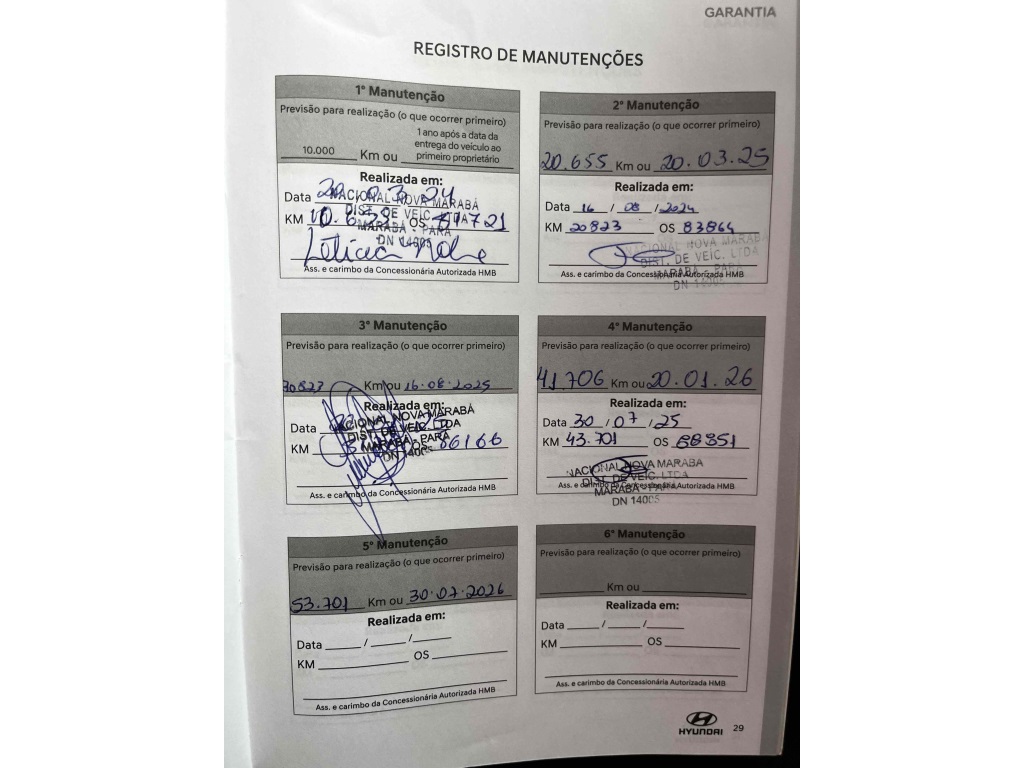 GARANTIA
REGISTRO DE MANUTENÇÕES
1ª Manutenção
Previsão para realização (o que ocorrer primeiro)
10.000 Km ou 1 ano após a data da
entrega do veículo ao
primeiro proprietário
Realizada em:
Data
NACIONAL NOVA MARABÁ
KM OS
DIST. DE VEIC. LTDA
MARABÁ - PARÁ
DN 14005
Ass. e carimbo da Concessionária Autorizada HMB
2ª Manutenção
Previsão para realização (o que ocorrer primeiro)
20.655 Km ou 20.03.25
Realizada em:
Data 16 / 08 / 2024
KM 20823 OS 83864
NACIONAL NOVA MARABÁ
DIST. DE VEÍC. LTDA
Ass. e carimbo da Concessionária Autorizada HMB
MARABÁ - PARÁ
DN 14005
3ª Manutenção
Previsão para realização (o que ocorrer primeiro)
30823 Km ou 16.08.2025
Realizada em:
NACIONAL NOVA MARABÁ
Data
DIST. DE VEIC. LTDA
KM OS 86166
MARABÁ - PARÁ
DN 14005
Ass. e carimbo da Concessionária Autorizada HMB
4ª Manutenção
Previsão para realização (o que ocorrer primeiro)
41.706 Km ou 20.01.26
Realizada em:
Data 30 / 07 / 25
KM 43.701 OS 88351
NACIONAL NOVA MARABA
DIST. DE VEIC. LTDA
Ass. e carimbo da Concessionária Autorizada HMB
MARABÁ - PARÁ
DN 14005
5ª Manutenção
Previsão para realização (o que ocorrer primeiro)
53.701 Km ou 30.07.2026
Realizada em:
Data / /
KM OS
Ass. e carimbo da Concessionária Autorizada HMB
6ª Manutenção
Previsão para realização (o que ocorrer primeiro)
Km ou
Realizada em:
Data / /
KM OS
Ass. e carimbo da Concessionária Autorizada HMB
HYUNDAI
29